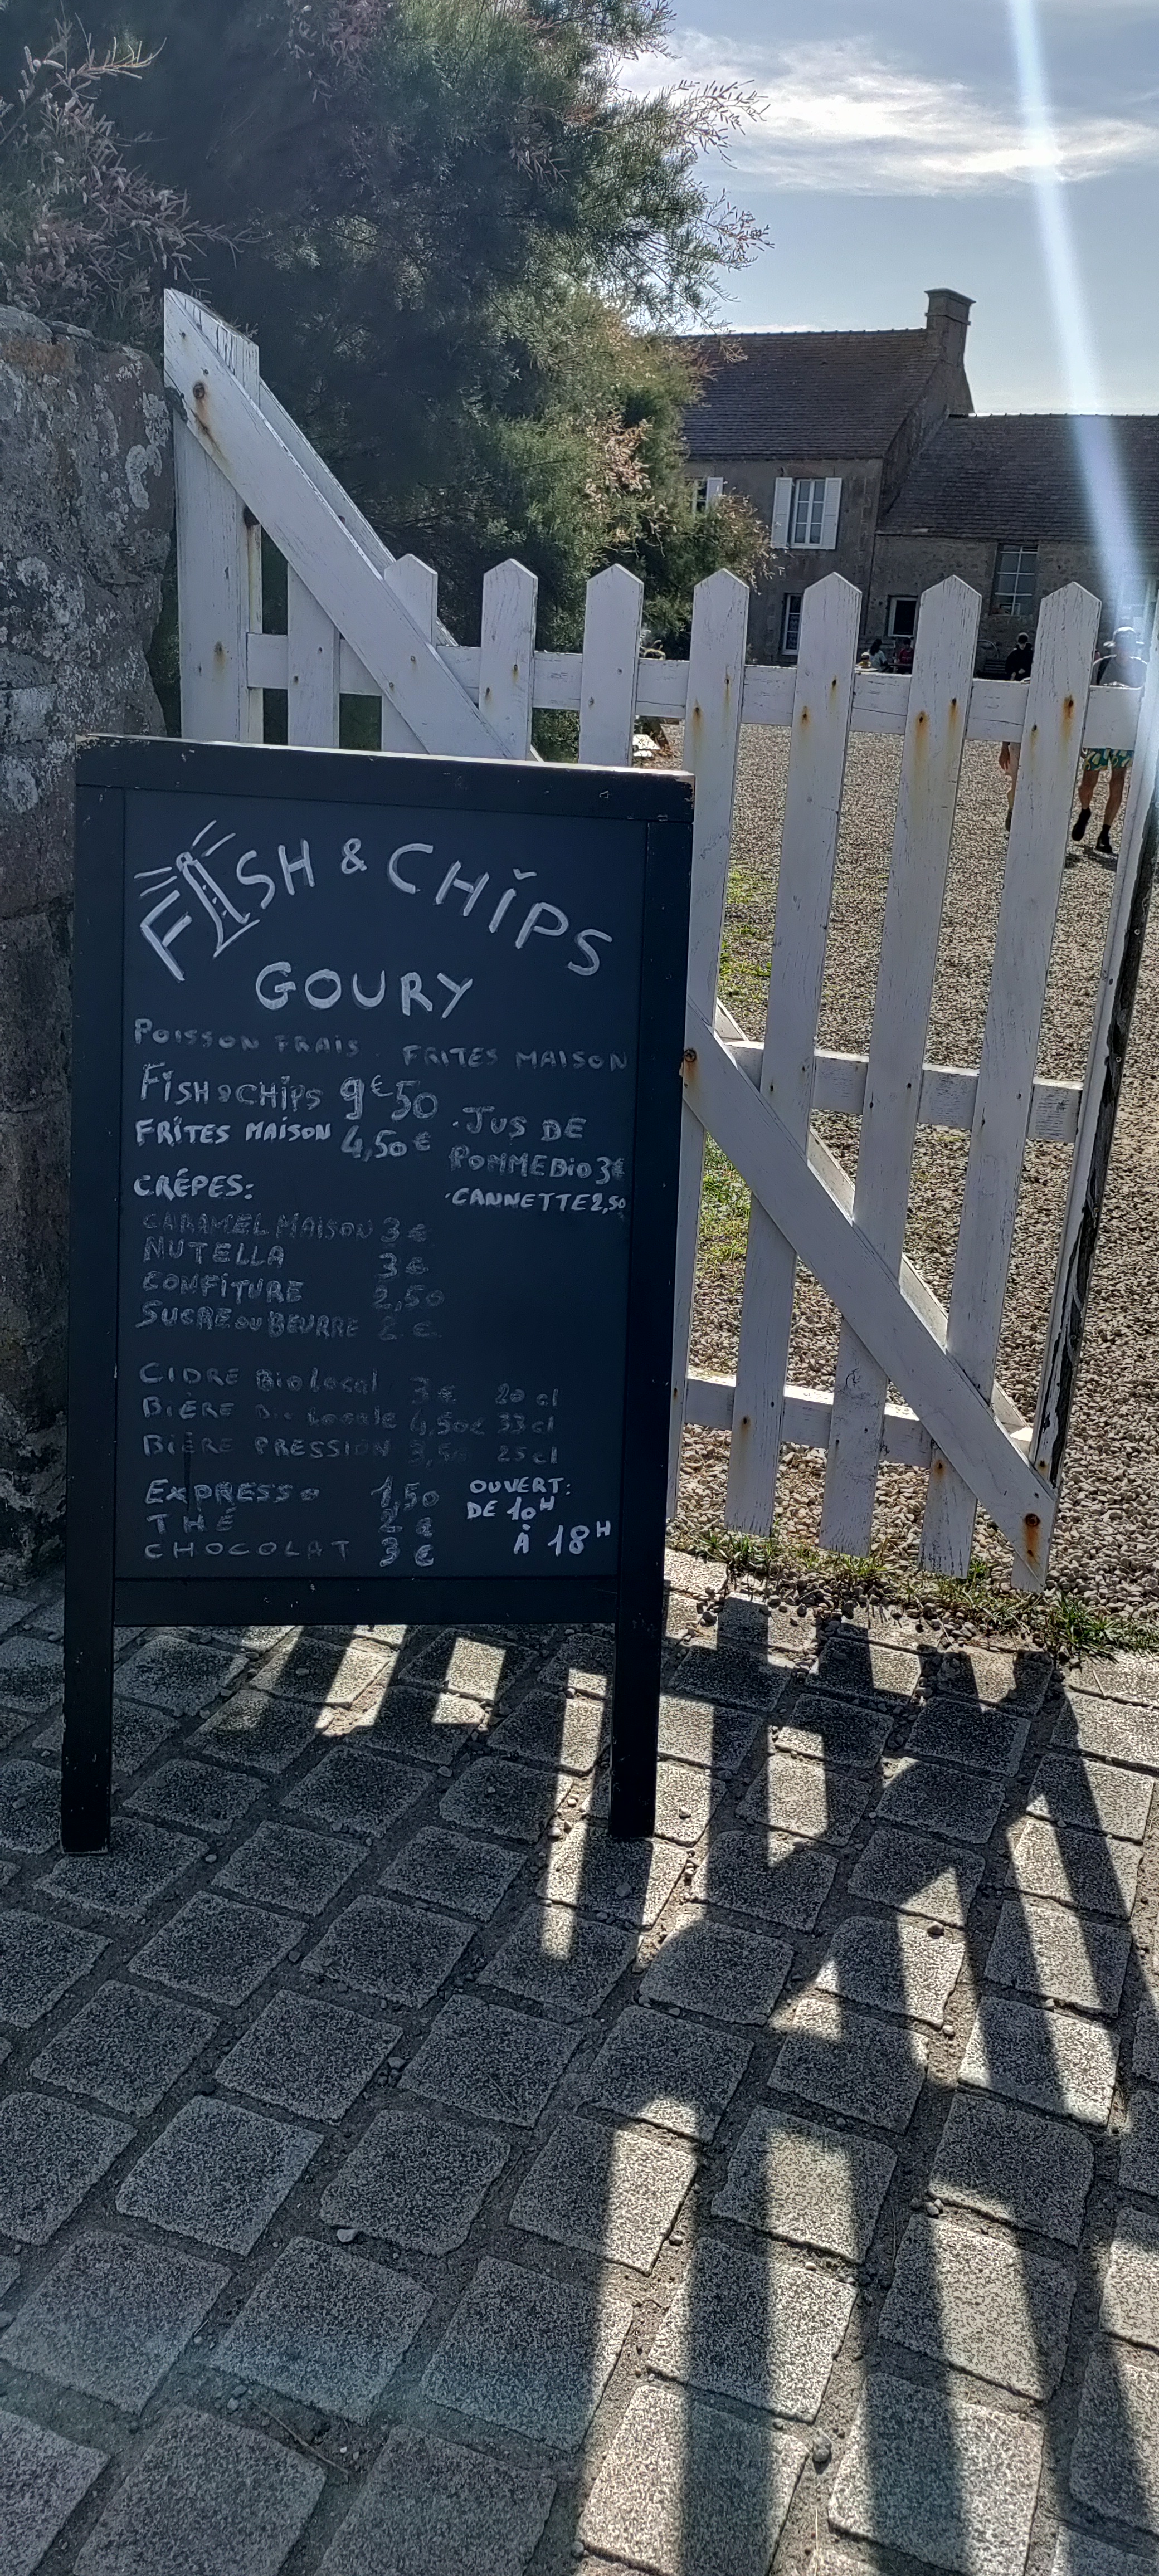 FISH & CHIPS
GOURY
POISSON FRAIS FRITES MAISON
FISH & CHIPS 9€50
FRITES MAISON 4,50€
.JUS DE
POMME BIO 3€
.CANNETTE 2,50
CRÊPES:
CARAMEL MAISON 3€
NUTELLA 3€
CONFITURE 2,50
SUCRE OU BEURRE 2€
CIDRE Bio Local 3€ 20 cl
BIÈRE Bio Locale 4,50€ 33 cl
BIÈRE PRESSION 3,50 25 cl
EXPRESSO 1,50
THÉ 2€
CHOCOLAT 3€
OUVERT:
DE 10H
À 18H